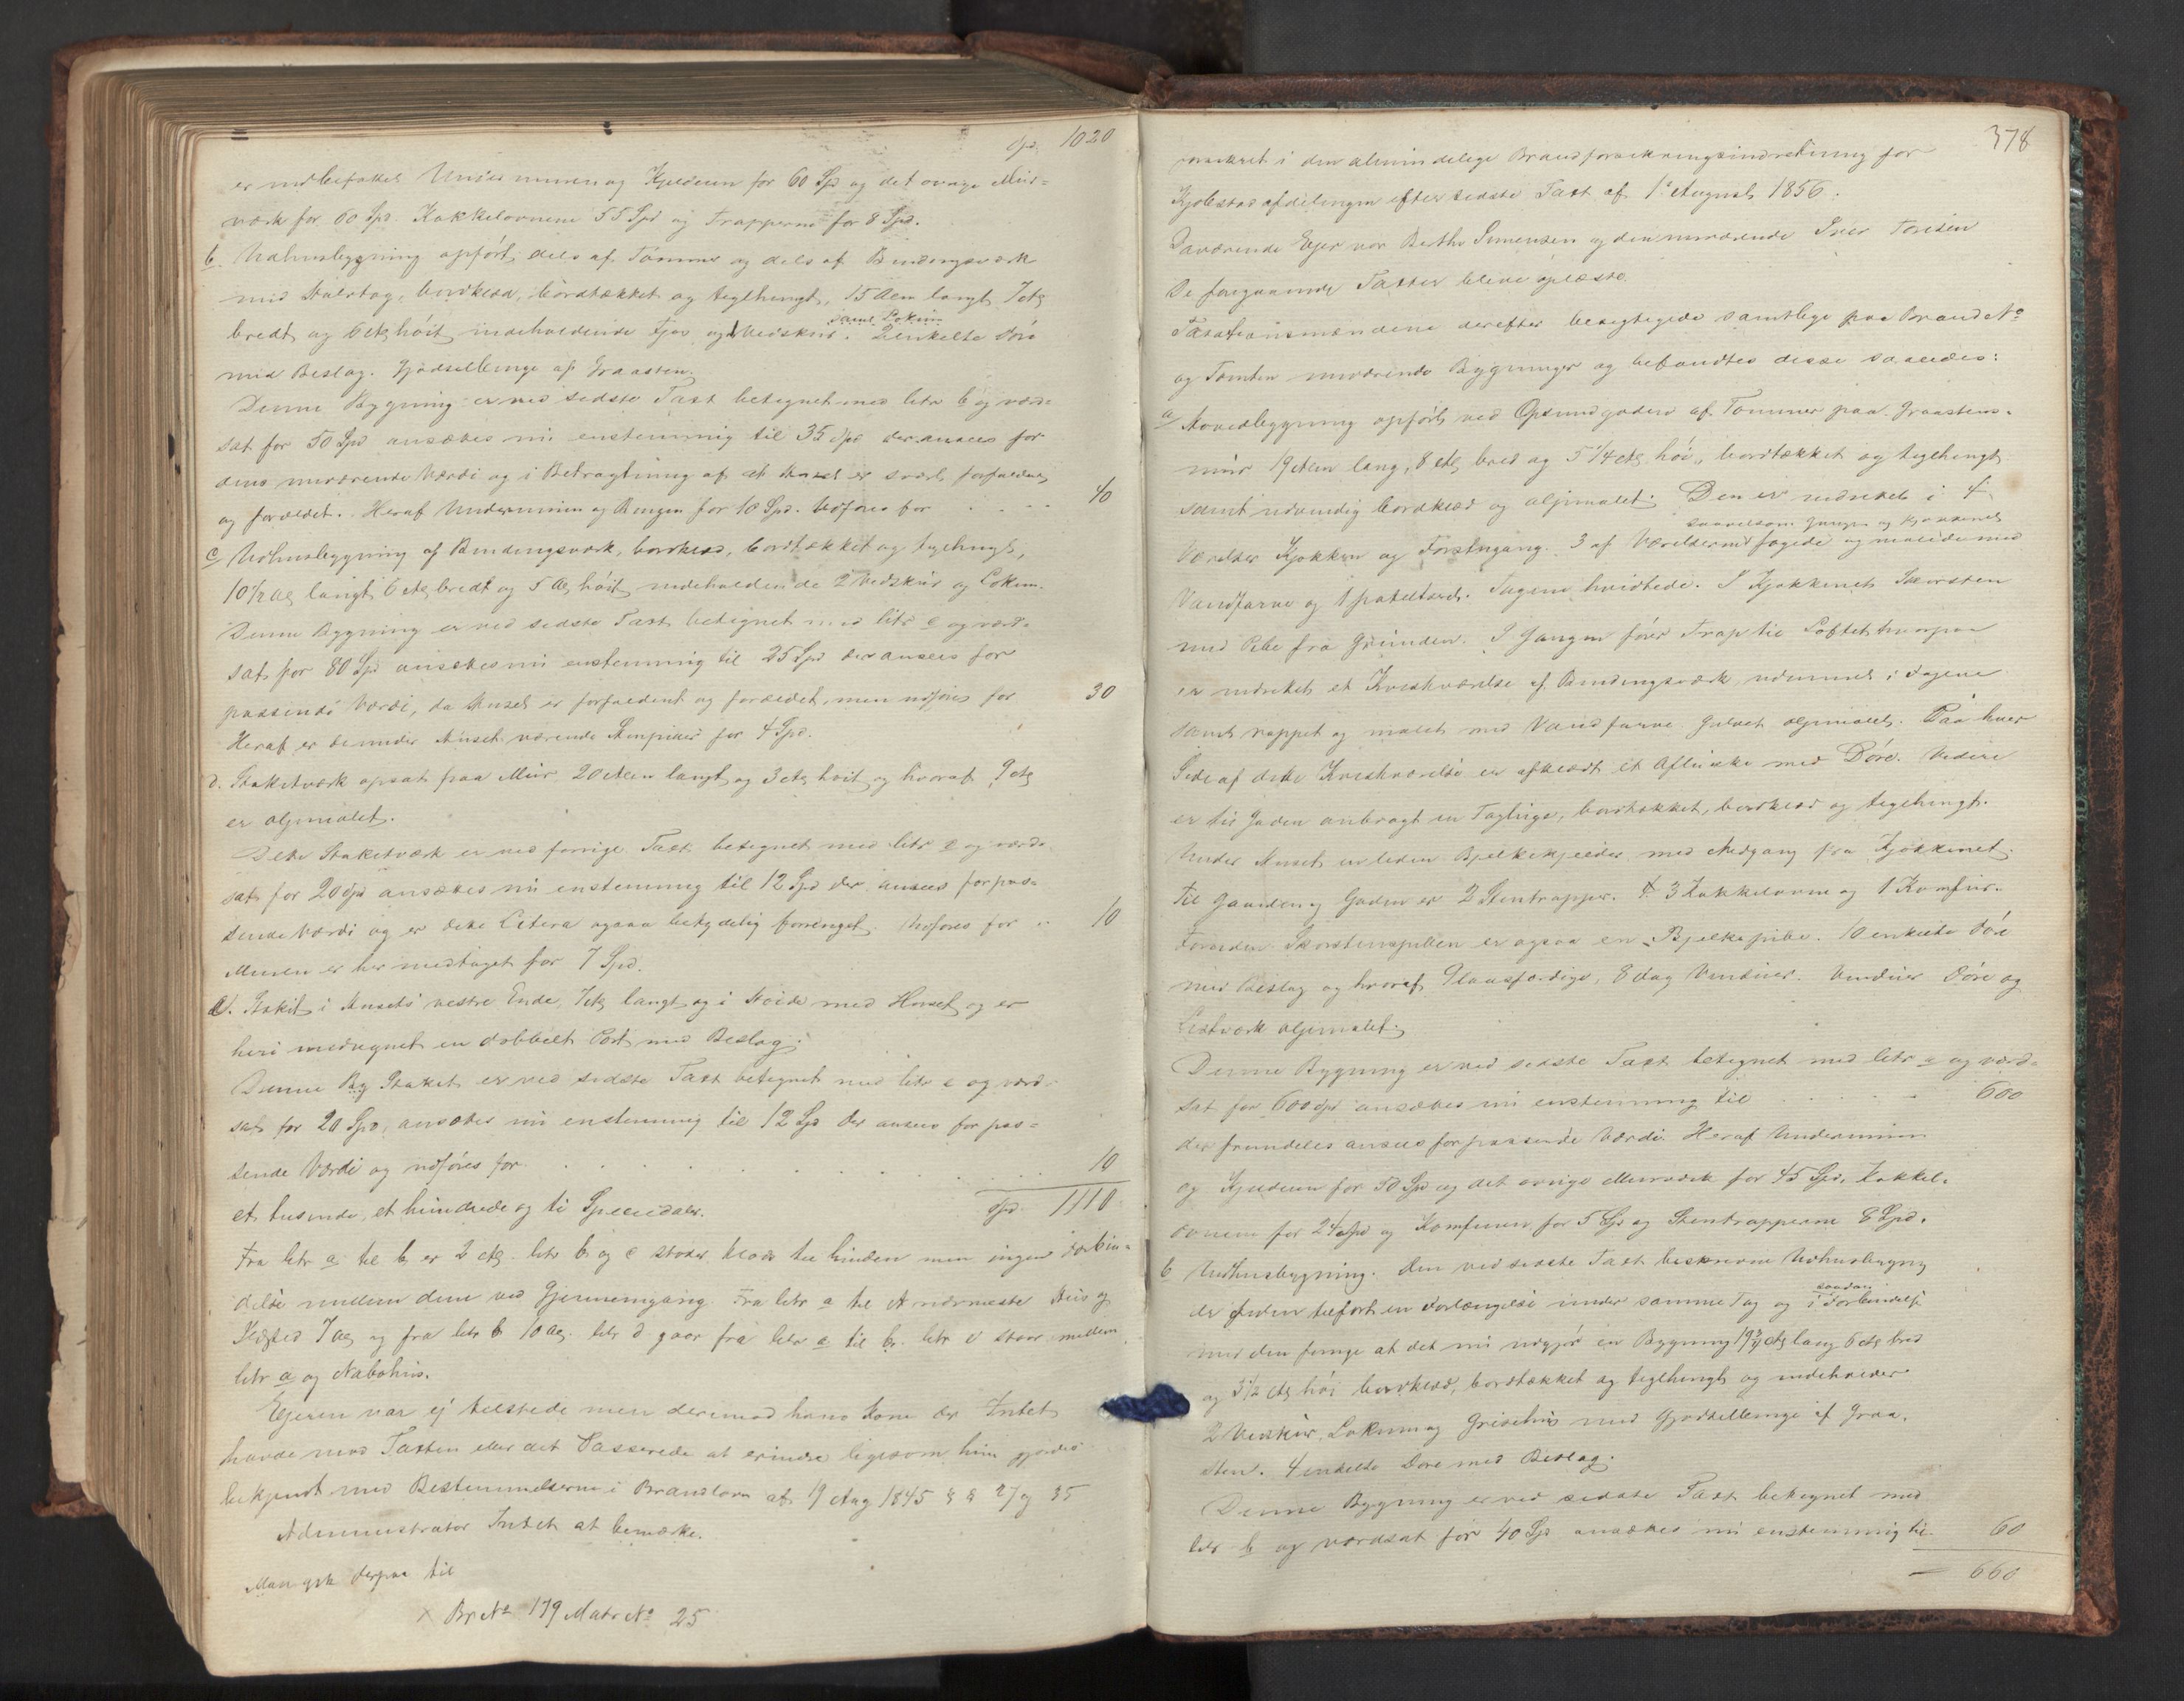 Spd. 1020
er indbefattet Undermuren og Kjelderen for 60 Spd og det øvrige Mur=
værk for 60 Spd. Kakkelovnene 55 Spd og Trapperne for 8 Spd.
b. Udhusbygning opført dels af Tømmer og dels af Bindingsværk
med Halvtag, bordklæd, bordtækket og teglhængt, 15 Alen langt 7 Al
bredt og 6 Al høit indeholdende Fjøs og Vedskur samt Lokum. 2 enkelte Døre
med Beslag. Gjødselbinge af Graasten.
Denne Bygning er ved sidste Taxt betegnet med litr b og værd=
sat for 50 Spd ansættes nu enstemmig til 35 Spd der ansees for
dens nuværende Værdi og i Betragtning af at Huset er svært forfaldent
og forældet. Heraf Undermuren og Bingen for 10 Spd. Udføres for 40
c Udhusbygning af Bindingsværk, bordklæd, bordtækket og teglhængt,
10 1/2 Al langt 6 Al bredt og 5 Al høit indeholdende 2 Vedskur og Lokum.
Denne Bygning er ved sidste Taxt betegnet med litr c og værd=
sat for 80 Spd ansættes nu enstemmig til 25 Spd der ansees for
passende Værdi, da Huset er forfaldent og forældet, men udføres for 30
Heraf er de under Huset værende Stenpiler for 4 Spd.
d. Stakitværk opsat paa Mur 20 Alen langt og 3 Al høit og hvoraf 9 Al
er oljemalet.
Dette Staketværk er ved forrige Taxt betegnet med litr e og værd=
sat for 20 Spd ansættes nu enstemmig til 12 Spd der ansees for pas=
sende Værdi og er dette Litera ogsaa betydelig forringet. Udføres for 10
Muren er her medtaget for 7 Spd.
e. Stakit i Husets vestre Ende, 7 Al langt og i Høide med Huset og er
heri indregnet en dobbelt Port med Beslag.
Denne Byg Staket er ved sidste Taxt betegnet med litr e og værd=
sat for 20 Spd, ansættes nu enstemmig til 12 Spd der ansees for pas=
sende Værdi og udføres for 10
et tusinde, et hundrede og ti Speciedaler. Spd. 1110
Fra litr a til b er 2 Al. litr b og c støder klods til hinden men ingen Forbin=
delse mellem dem ved Gjennemgang. Fra litr a til A nærmeste Hus og
Ildsted 7 Al og fra litr b 10 Al. litr d gaar fra litr a til b. litr e staar mellem
litr a og Nabohus.
Ejeren var ej tilstede men derimod hans Kone der Intet
havde mod Taxten eller det Passerede at erindre ligesom hun gjordes
bekjendt med Bestemmelserne i Brandloven af 19 Aug 1845 § § 27 og 35
Administrator Intet at bemærke.
Man gik derpaa til
× Br No 179 Matr No 25
378
forsikret i den almindelige Brandforsikringsindretning for
Kjøbstadafdelingen efter sidste Taxt af 1 August 1856.
Daværende Ejer var Berthe Simensen og den nuværende Iver
De foregaaende Taxter bleve oplæste.
Taxationsmændene derefter besigtigede samtlige paa Brand No
og Tomten nuværende Bygninger og befandtes disse saaledes:
a Hovedbygning opført ved Opsundgaden af Tømmer paa Graastens=
mur 19 Alen lang, 8 Al bred og 5 1/4 Al høi, bordtækket og teglhængt
samt udvendig bordklæd og oljemalet. Den er indredet i 4
Værelser Kjøkken og Forstugang. 3 af Værelserne saavelsom Gangen og Kjøkkenet fagede og malede med
Vandfarve og 1 patelteret. Tagene hvidtede. I Kjøkkenet Skorsten
med Pibe fra Grunden. I Gangen fører Trap til Loftet hvorpaa
er indredet et Kvistværelse af Bindingsværk, udfunnet i Fagene
samt rappet og malet med Vandfarve. Gulvet oljemalet. Paa hver
Side af dette Kvistværelse er afklædt et Aflukke med Døre. Videre
er til Gaden anbragt en Taglinge, bordtækket, bordklæd og teglhængt.
Under Huset en liden Bjelkekjelder med Nedgang fra Kjøkkenet.
Til Gaarden og Gaden er 2 Stentrapper. 3 Kakkelovne og 1 Komfur.
Foruden Skorstenspiben er ogsaa en Bjelkepibe. 10 enkelte Døre
med Beslag og hvoraf 9 laasfærdige, 8 Fag Vinduer. Vinduer Døre og
Listværk oljemalet.
Denne Bygning er ved sidste Taxt betegnet med litr a og værd=
sat for 600 Spd ansættes nu enstemmig til 600
der fremdeles ansees for passende Værdi. Heraf Undermuren
og Kjelderen for 50 Spd og det øvrige Murværk for 45 Spd, Kakkel=
ovnene for 24 Spd og Komfuren for 5 Spd og Stentrapperne 8 Spd.
b Udhusbygning. Den ved sidste Taxt beskrevne Udhusbygning
er siden tilført en Forlængelse under samme Tag og i saadan Forbindelse
med den forrige at det nu udgjør en Bygning 19 3/4 Al lang 6 Al bred
og 3 1/2 Al høi bordklæd, bordtækket og teglhængt og indeholder
2 Vedskur, Lokum og Grisehus med Gjødselbinge af Graa=
sten. 4 enkelte Døre med Beslag.
Denne Bygning er ved sidste Taxt betegnet med
litr b og værdsat for 40 Spd ansættes nu enstemmig til 60
660